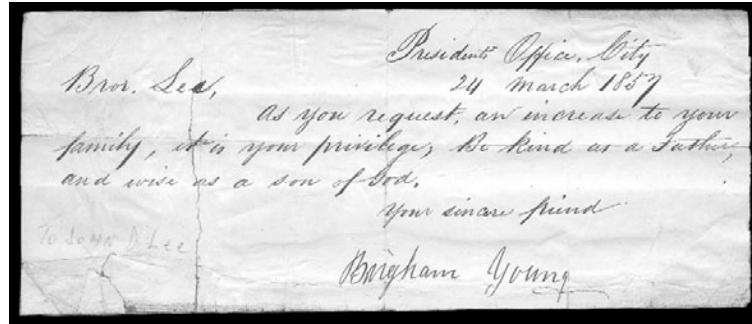 Presidents Office, City
24 March 1857
Bror. Lee,
As you request, an increase to your
family, it is your privilege; Be kind as a Father,
and wise as a son of God.
Your sincere friend
To John D. Lee
Brigham Young